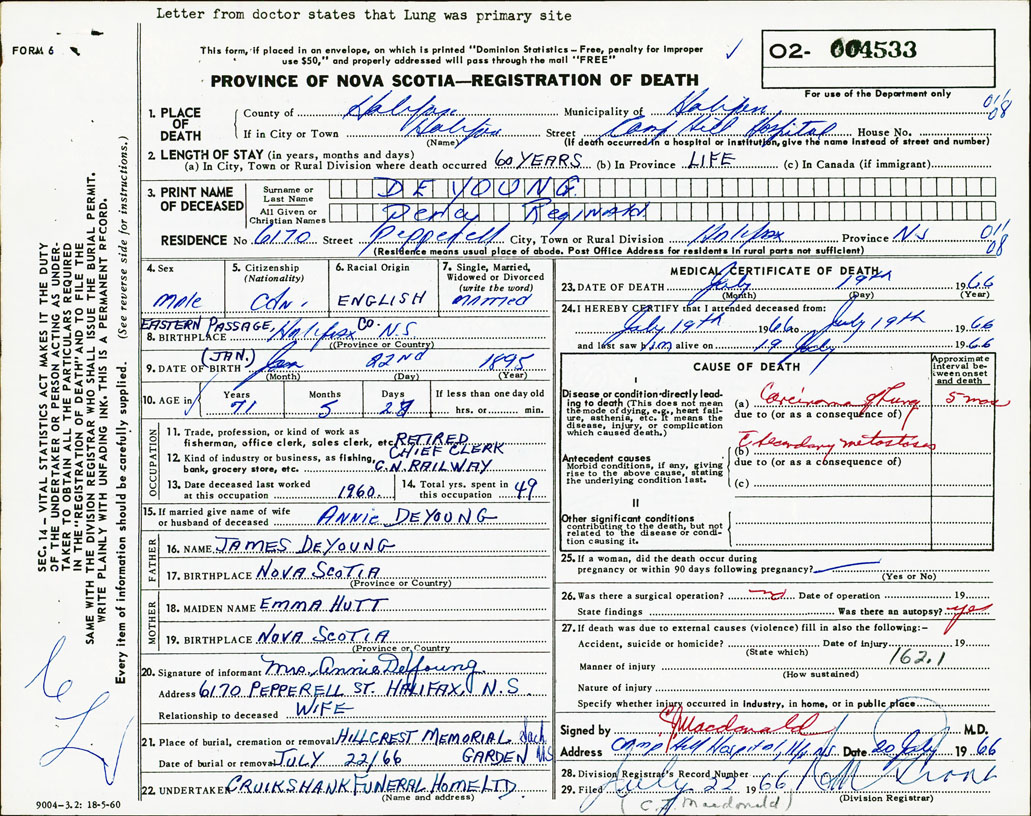 Letter from doctor states that Lung was primary site
FORM 6
This form, if placed in an envelope, on which is printed "Dominion Statistics – Free, penalty for improper
use $50," and properly addressed will pass through the mail "FREE"
O2- 004533
PROVINCE OF NOVA SCOTIA—REGISTRATION OF DEATH
For use of the Department only
1. PLACE OF DEATH
County of Halifax Municipality of Halifax 01/08
If in City or Town Halifax Street Camp Hill Hospital House No.
(Name) (If death occurred in a hospital or institution, give the name instead of street and number)
2. LENGTH OF STAY (in years, months and days)
(a) In City, Town or Rural Division where death occurred 60 YEARS (b) In Province LIFE (c) In Canada (if immigrant)
3. PRINT NAME OF DECEASED
Surname or Last Name DEYOUNG
All Given or Christian Names Percy Reginald
RESIDENCE No. 6170 Street Pepperell City, Town or Rural Division Halifax Province NS 01/08
(Residence means usual place of abode. Post Office Address for residents in rural parts not sufficient)
4. Sex male
5. Citizenship (Nationality) Cdn.
6. Racial Origin ENGLISH
7. Single, Married, Widowed or Divorced (write the word) married
EASTERN PASSAGE, Halifax Co. N.S
8. BIRTHPLACE
(Province or Country)
(JAN.)
9. DATE OF BIRTH Jan 22nd 1895
(Month) (Day) (Year)
10. AGE in Years 71 Months 5 Days 28 If less than one day old hrs. or min.
OCCUPATION
11. Trade, profession, or kind of work as
fisherman, office clerk, sales clerk, etc. RETIRED
CHIEF CLERK
12. Kind of industry or business, as fishing,
bank, grocery store, etc. C.N. RAILWAY
13. Date deceased last worked at this occupation 1960.
14. Total yrs. spent in this occupation 49
15. If married give name of wife
or husband of deceased ANNIE DEYOUNG
FATHER
16. NAME JAMES DEYOUNG
17. BIRTHPLACE NOVA SCOTIA
(Province or Country)
MOTHER
18. MAIDEN NAME EMMA HUTT
19. BIRTHPLACE NOVA SCOTIA
(Province or Country)
20. Signature of informant Mrs. Annie DeYoung
Address 6170 PEPPERELL ST. HALIFAX, N.S.
Relationship to deceased WIFE
21. Place of burial, cremation or removal HILLCREST MEMORIAL Sack
Date of burial or removal JULY 22/66 GARDEN N.S
22. UNDERTAKER CRUIKSHANK FUNERAL HOME LTD.
(Name and address)
MEDICAL CERTIFICATE OF DEATH
23. DATE OF DEATH July 19th 1966
(Month) (Day) (Year)
24. I HEREBY CERTIFY that I attended deceased from:
July 19th 1966 to July 19th 1966
and last saw him alive on 19 July 1966
CAUSE OF DEATH
Approximate interval between onset and death
I
Disease or condition directly leading to death (This does not mean the mode of dying, e.g., heart failure, asthenia, etc. It means the disease, injury, or complication which caused death.)
(a) Carcinoma of Lung 5 mos
due to (or as a consequence of)
c̄ secondary metastases
(b)
due to (or as a consequence of)
(c)
Antecedent causes
Morbid conditions, if any, giving rise to the above cause, stating the underlying condition last.
II
Other significant conditions
contributing to the death, but not related to the disease or condition causing it.
25. If a woman, did the death occur during
pregnancy or within 90 days following pregnancy?
(Yes or No)
26. Was there a surgical operation? no Date of operation 19
State findings Was there an autopsy? yes
27. If death was due to external causes (violence) fill in also the following:–
Accident, suicide or homicide? Date of injury 19
(State which) 162.1
Manner of injury
(How sustained)
Nature of injury
Specify whether injury occurred in industry, in home, or in public place
Signed by Macdonald M.D.
Address Camp Hill Hospital, Hfx NS Date 20 July 1966
28. Division Registrar's Record Number
29. Filed July 22 1966
(Division Registrar)
Macdonald)
SEC. 14 – VITAL STATISTICS ACT MAKES IT THE DUTY
OF THE UNDERTAKER OR PERSON ACTING AS UNDER-
TAKER TO OBTAIN ALL THE PARTICULARS REQUIRED
IN THE "REGISTRATION OF DEATH" AND TO FILE THE
SAME WITH THE DIVISION REGISTRAR WHO SHALL ISSUE THE BURIAL PERMIT.
WRITE PLAINLY WITH UNFADING INK. THIS IS A PERMANENT RECORD.
Every item of information should be carefully supplied. (See reverse side for instructions.)
9004-3.2: 18-5-60